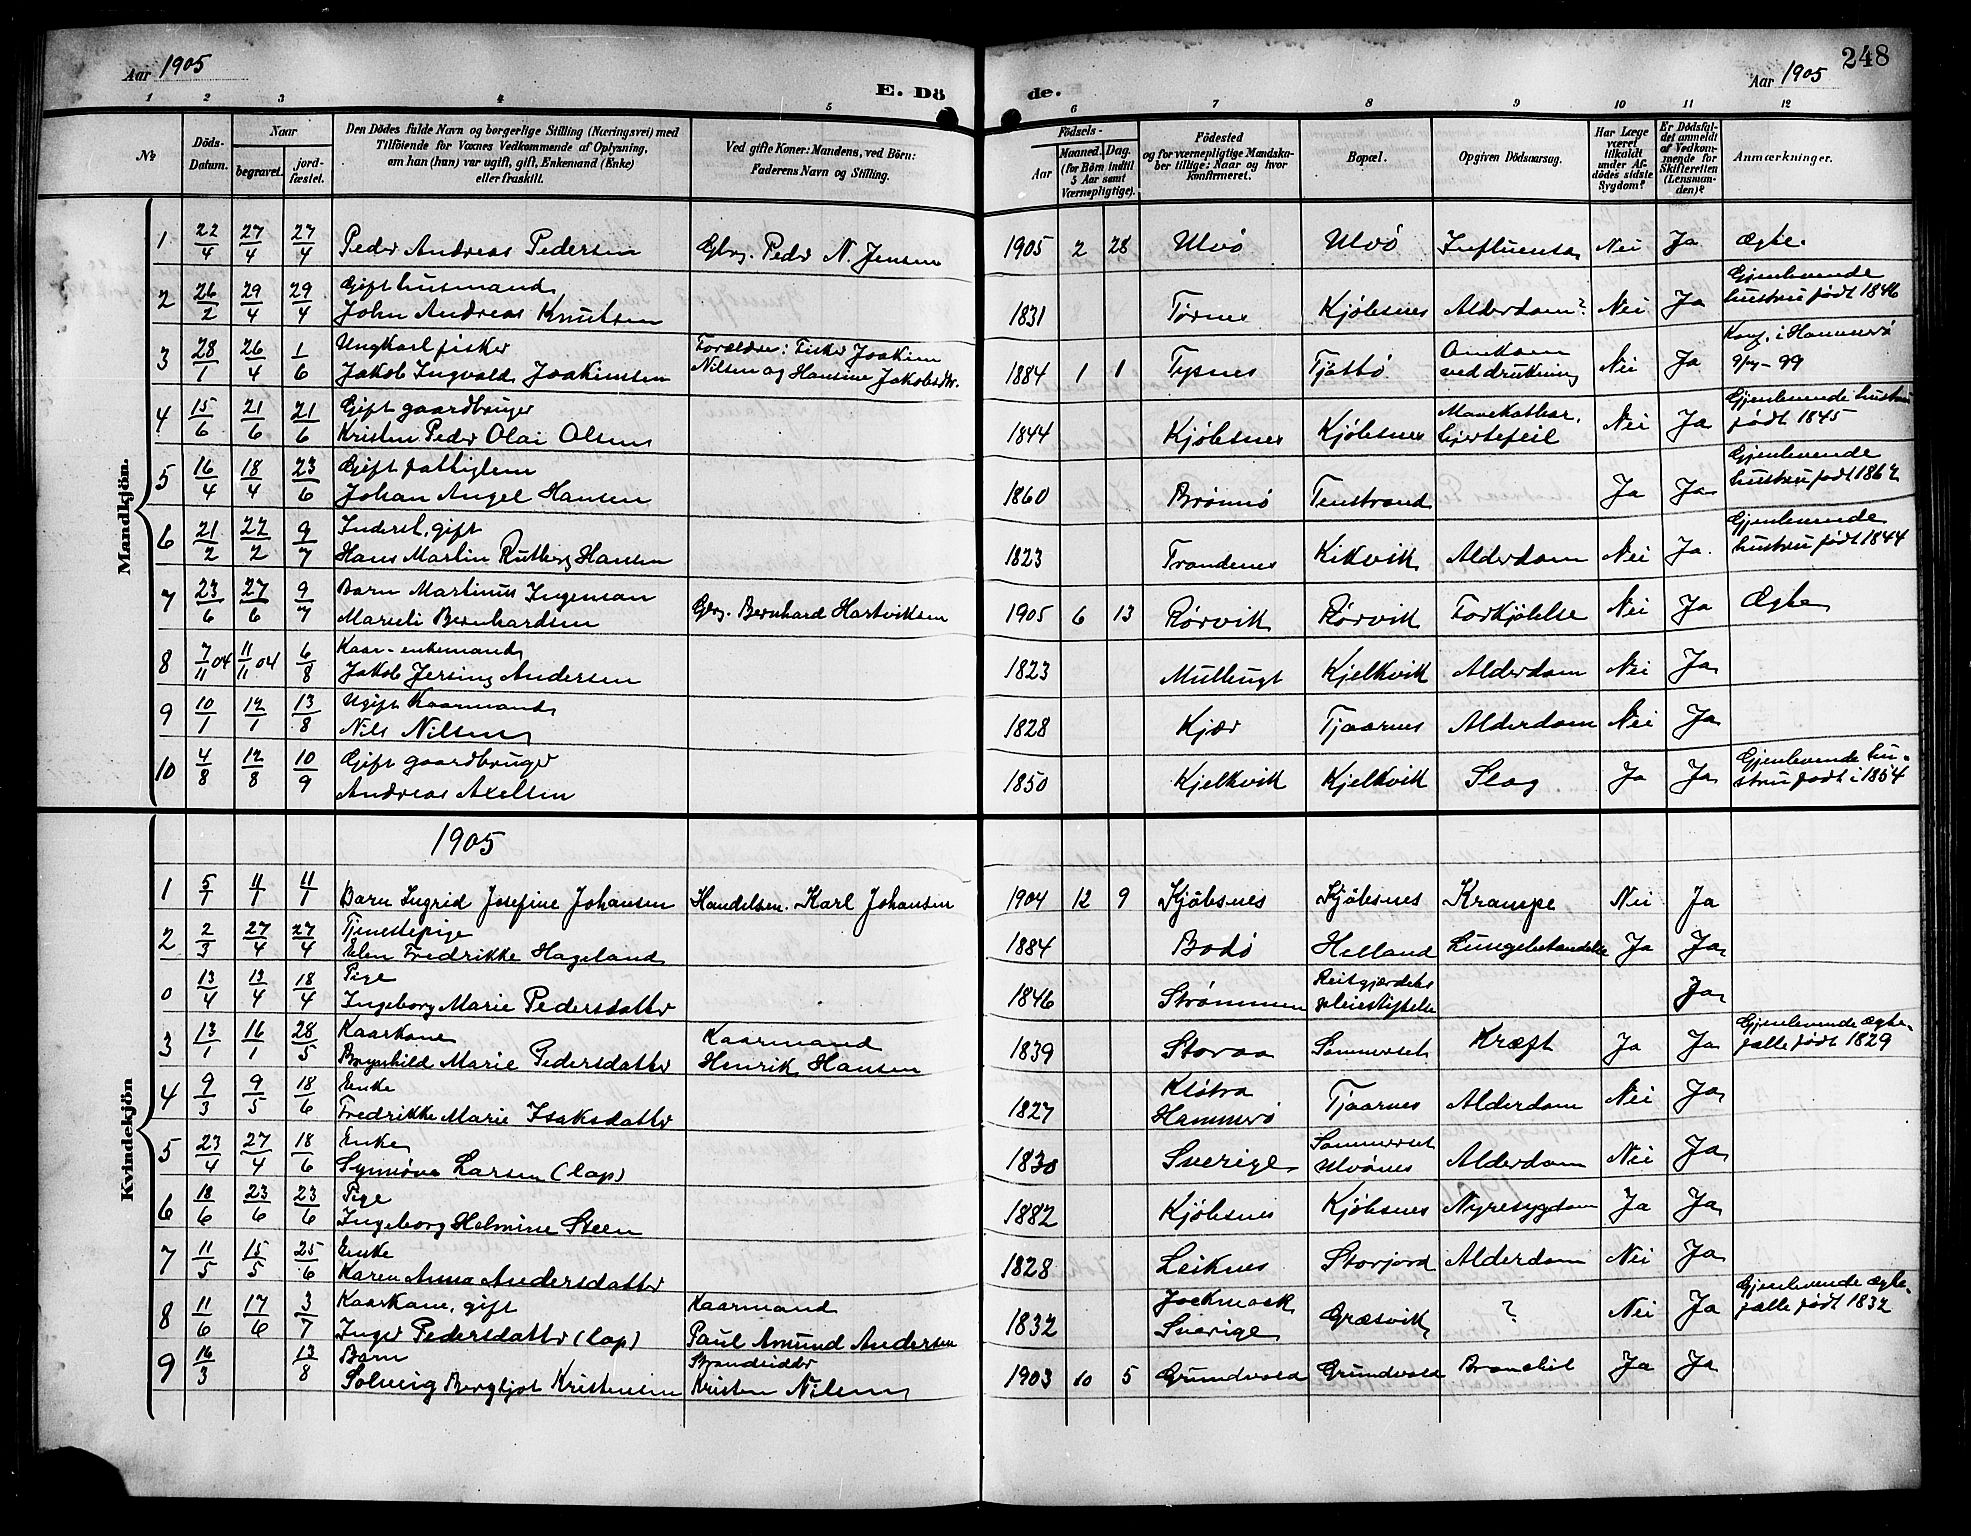 248
Aar 1905
E. Dö
de.
Aar 1905
1 2 3 4 5 6 7 8 9 10 11 12
№
Döds-Datum.
Naar
begravet.
jord-fæstet.
Den Dödes fulde Navn og borgerlige Stilling (Næringsvei) med
Tilföiende for Voxnes Vedkommende af Oplysning,
om han (hun) var ugift, gift, Enkemand (Enke)
eller fraskilt.
Ved gifte Koner: Mandens, ved Börn:
Faderens Navn og Stilling.
Födsels-
Aar
Maaned. Dag.
(for Börn indtil
5 Aar samt
Værnepligtige).
Födested
og for værnepligtige Mandska-
ber tillige: Naar og hvor
konfirmeret.
Bopæl.
Opgiven Dödsaarsag.
Har Læge
været
tilkaldt
under Af-
dödes sidste
Sygdom?
Er Dödsfal-
det anmeldt
af Vedkom-
mende for
Skifteretten
(Lensman-
den)?
Anmærkninger.
Mandkjön.
1 22/4 27/4 27/4 Peder Andreas Pedersen Gbrg. Peder N. Jensen 1905 2 28 Ulvö Ulvö Influensa Nei Ja Ægte.
2 26/2 29/4 29/4 Gift husmand
John Andreas Knutsen 1831 Tørnes Kjöbsnes Alderdom? Nei Ja Gjenlevende
hustru født 1846
3 28/1 26/4 1/6 Ungkarl fisker
Jakob Ingvald Joakimsen Forældre: Fisker Joakim
Nilsen og Hansine Jakobsdtr. 1884 1 1 Typnes Tjottö Omkom
ved drukning Nei Ja Konf. i Hammerö
9/7-99
4 15/6 21/6 21/6 Gift gaardbruger
Kristen Peder Olai Olsen 1844 Kjöbsnes Kjöbsnes Mavekathar,
hjertefeil Nei Ja Gjenlevende hustru
født 1845
5 16/4 18/4 23/6 Gift fattiglem
Johan Angel Hansen 1860 Brönnö Tenstrand Ja Ja Gjenlevende
hustru født 1862
6 21/2 22/2 9/7 Inderst, gift
Hans Martin Rutberg Hansen 1823 Trondenes Kikvik Alderdom Nei Ja. Gjenlevende
hustru født 1844
7 23/6 27/6 9/7 Barn Martinus Ingeman
Marseli Bernhardsen Gbrg. Bernhard Hartviksen 1905 6 13 Rörvik Rörvik Forkjölelse Nei Ja Ægte
8 7/11 04 11/11 04 6/8 Kaar-enkemand
Jakob Jersing Andersen 1823 Kjelkvik Alderdom Nei Ja
9 10/1 12/1 13/8 Ugift Kaarmand
Nils Nilsen 1828 Kjær Tjaarnes Alderdom Nei Ja
10 4/8 12/8 10/9 Gift gaardbruger
Andreas Axelsen 1850 Kjelkvik Kjelkvik Slag Ja Ja Gjenlevende hu-
stru født i 1854
Kvindekjön
1905
1 5/1 11/1 11/1 Barn Ingrid Josefine Johansen Handelsm. Karl Johansen 1904 12 9 Kjöbsnes Kjöbsnes Krampe Nei Ja
2 2/3 27/4 27/4 Tjenestepige
Elen Fredrikke Hageland 1884 Bodö Helland Lungebetændelse Ja Ja
0 13/4 13/4 18/4 Pige
Ingeborg Marie Pedersdatter 1846 Strömmen Reitgjærdets
pleiestiftelse Ja
3 13/1 16/1 28/5 Kaarkone
Brynhild Marie Pedersdatter Kaarmand
Henrik Hansen 1839 Storaa Sommerset Kræft Ja Ja Gjenlevende ægte-
fælle født 1829
4 9/3 9/5 18/6 Enke
Fredrikke Marie Isaksdatter 1827 Klötra
Hammerö Tjaarnes Alderdom Nei Ja
5 23/4 27/4 18/6 Enke
Synnöve Larsen (lap) 1830 Sverige Sommerset
Ulvönes Alderdom Nei Ja
6 18/6 23/6 23/6 Pige
Ingeborg Helmine Steen 1882 Kjöbsnes Kjöbsnes Nyresygdom Ja Ja
7 11/5 15/5 25/6 Enke
Karen Anna Andersdatter 1828 Leiknes Storjord Alderdom Nei Ja
8 11/6 17/6 3/7 Kaarkone, gift
Inger Pedersdatter (lap) Kaarmand
Paul Amund Andersen 1832 Jockmock
Sverige Græsvik ? Nei Ja Gjenlevende ægte-
fælle født 1832
9 16/3 13/8 Barn
Solveig Bergljot Kristensen Strandsidder
Kristen Nilsen 1903 10 5 Grundvold Grundvold Bronchit Ja Ja